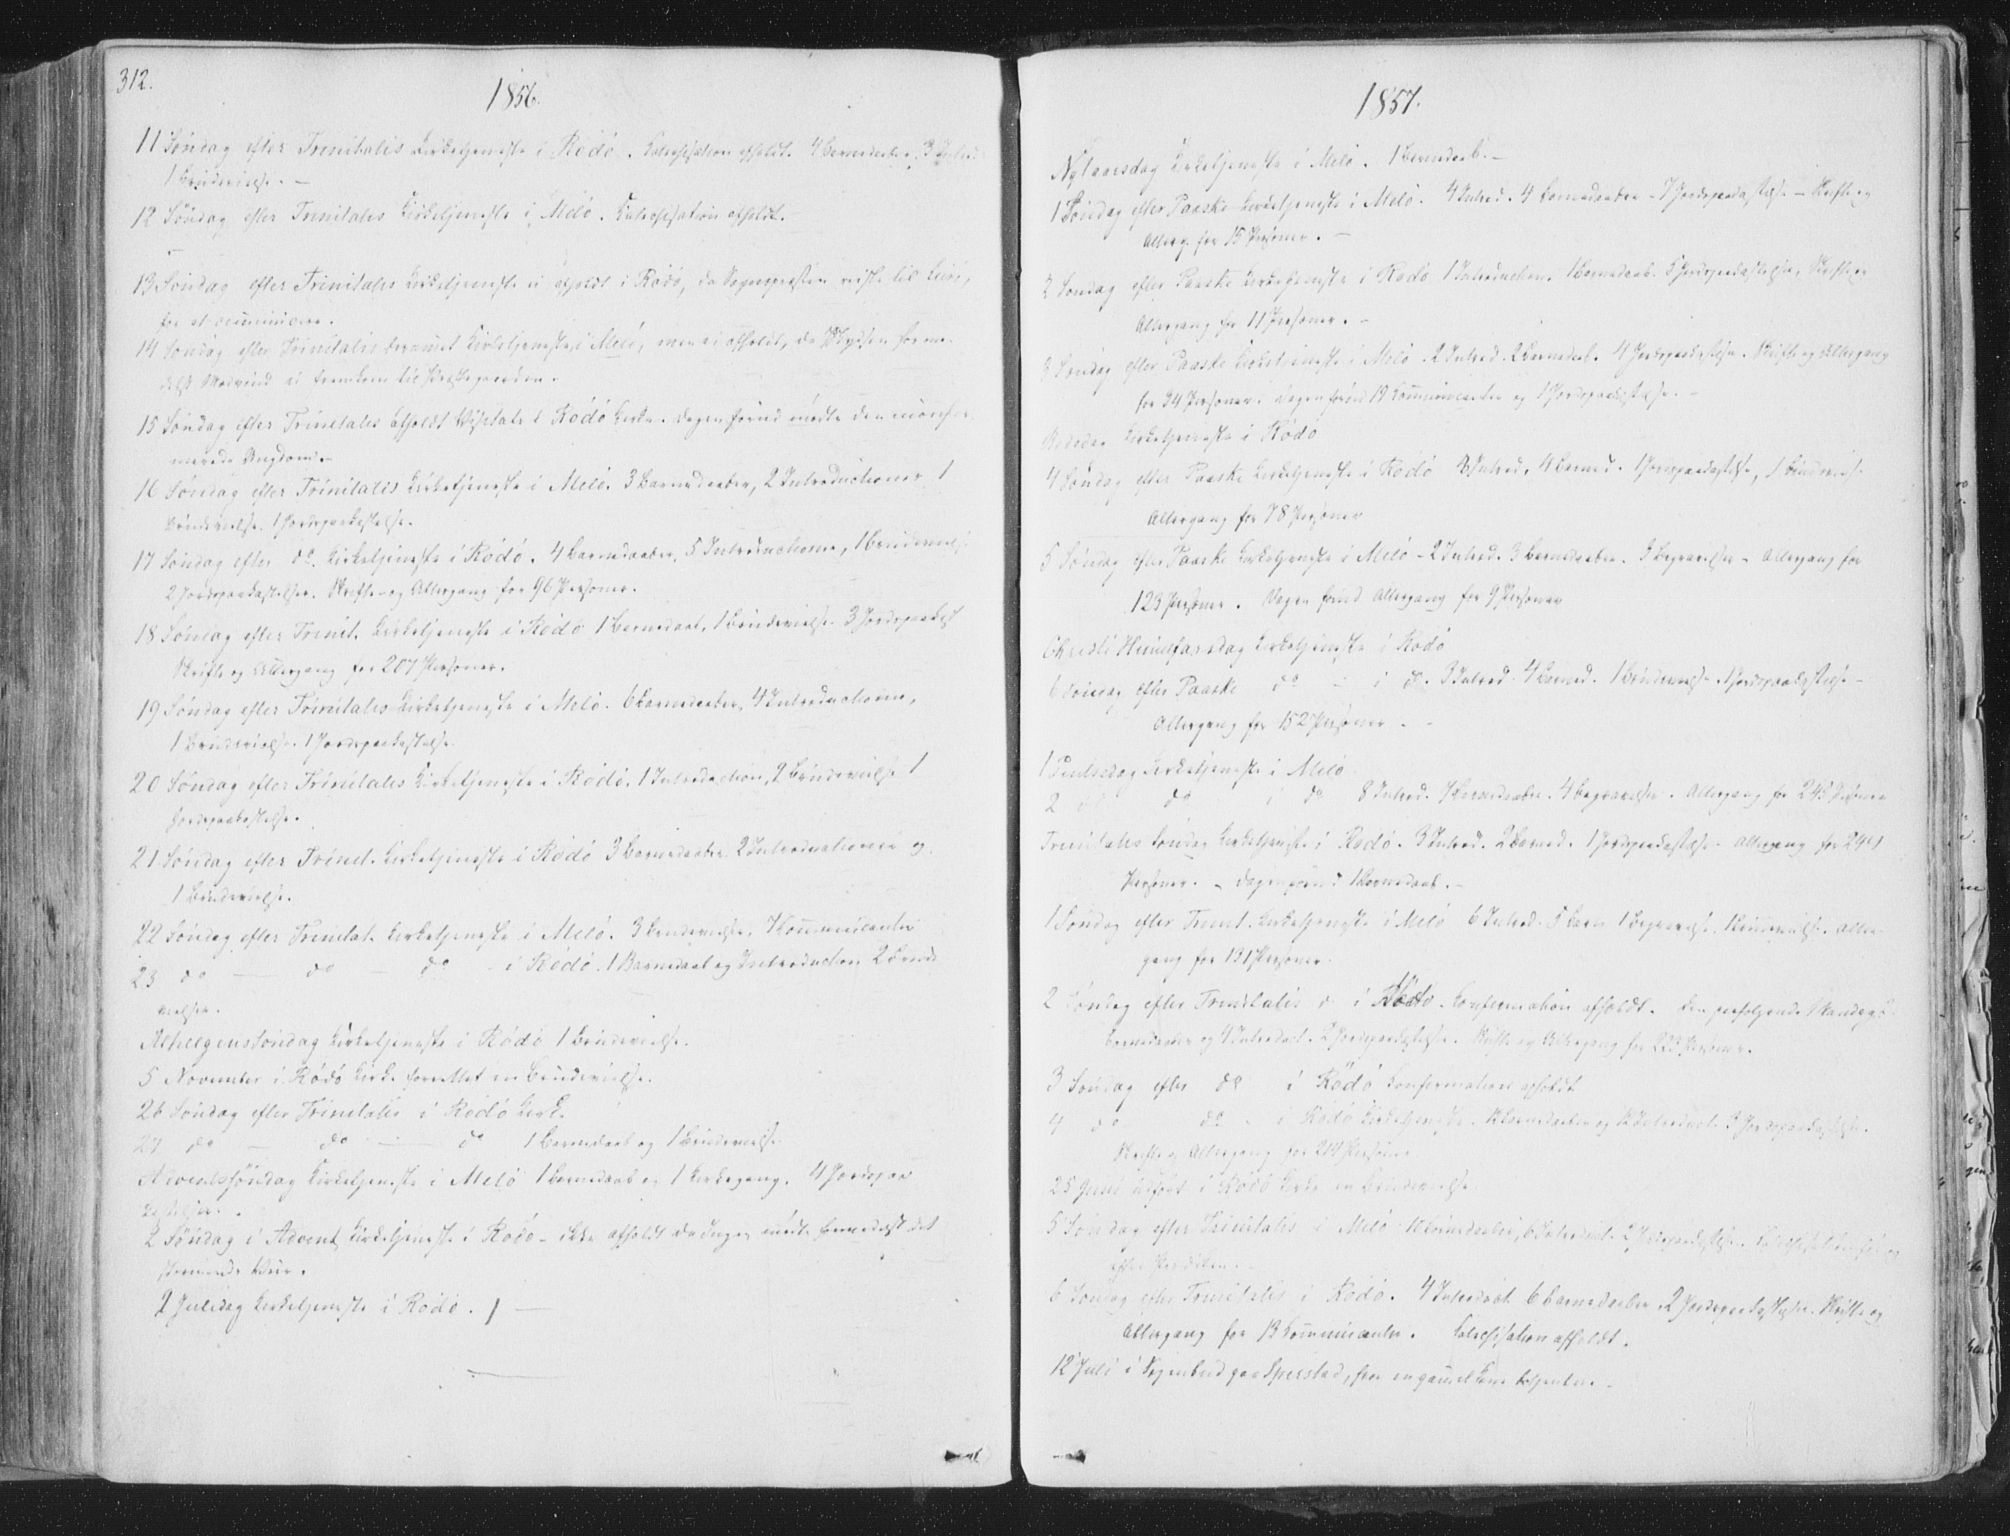 312.
1856.
11 Søndag efter Trinitatis Kirketjeneste i Rødø. Catechisation afholdt. 4 Barnedaaber, 3 Introd.
1 Brudevielse. —
12 Søndag efter Trinitatis Kirketjeneste i Melø. Catechisation afholdt.
13 Søndag efter Trinitatis Kirketjeneste ei afholdt i Rødø, da Sognepræsten reiste til
for at
14 Søndag efter Trinitatis berammet Kirketjeneste i Melø, men ei afholdt, da Skydsen forme-
delst Modvind ei fremkom til Præstegaarden.
15 Søndag efter Trinitatis afholdt Visitats i Rødø Kirke. Dagen forud mødte den
Ungdom. —
16 Søndag efter Trinitatis Kirketjeneste i Melø. 3 Barnedaaber, 2 Introductioner, 1
Brudevielse. 1 Jordspaakastelse.
17 Søndag efter do. Kirketjeneste i Rødø. 4 Barnedaaber, 5 Introductioner, 1 Brudevielse
2 Jordspaakastelser. Skrifte og Altergang for 96 Personer.
18 Søndag efter Trinit. Kirketjeneste i Rødø 1 Barnedaab, 1 Brudevielse. 3 Jordspaakast
Skrifte og Altergang for 207 Personer.
19 Søndag efter Trinitatis Kirketjeneste i Melø. 6 Barnedaaber, 4 Introductioner,
1 Brudevielse. 1 Jordspaakastelse.
20 Søndag efter Trinitatis Kirketjeneste i Rødø. 1 Introduction, 2 Brudevielse 1
Jordspaakastelse.
21 Søndag efter Trinit. Kirketjeneste i Rødø 3 Barnedaaber 2 Introductioner og
1 Brudevielse.
22 Søndag efter Trinitat. Kirketjeneste i Melø. 3 Brudevielser, 7 Communicanter
23 do — do — do - i Rødø. 1 Barnedaab og Introduction 2 Brude
vielser.
Alhelgenssøndag Kirketjeneste i Rødø 1 Brudevielse.
5 November i Rødø Kirke forrettet en Brudevielse.
26 Søndag efter Trinitatis i Rødø Kirke
27 do — do — do 1 Barnedaab og 1 Brudevielse.
Adventssøndag Kirketjeneste i Melø 1 Barnedaab og 1 Kirkegang. 4 Jordspaa
kastelser.
2 Søndag i Advent Kirketjeneste i Rødø - ikke afholdt da Ingen mødte formedelst det
stormende Veir.
2 Juledag Kirketjeneste i Rødø. 1 —
1857.
Nytaarsdag Kirketjeneste i Melø. 1 Barnedaab. —
1 Søndag efter Paaske Kirketjeneste i Melø. 4 Introd. 4 Barnedaaber - 7 Jordspaakastelse - Skrifte og
Alterg. for 15 Personer. —
2 Søndag efter Paaske Kirketjeneste i Rødø 1 Introduction. 1 Barnedaab. 5 Jordspaakastelser, Skrifte og
Altergang for 11 Personer. —
3 Søndag efter Paaske Kirketjeneste i Melø. 2 Introd. 2 Barnedaab. 4 Jordspaakastelse. Skrifte og Altergang
for 34 Personer. Dagen forud 19 Communicanter og 1 Jordspaakastelse. —
Bededag Kirketjeneste i Rødø
4 Søndag efter Paaske Kirketjeneste i Rødø 3 Introd. 4 Barned. 1 Jordspaakastelse, 1 Brudevielse
Altergang for 78 Personer
5 Søndag efter Paaske Kirketjeneste i Melø - 2 Introd. 3 Barnedaaber. 3 Begravelser - Altergang for
123 Personer. Dagen forud Altergang for 9 Personer
Christi Himmelfartsdag Kirketjeneste i Rødø
6 Søndag efter Paaske do - i do. 3 Introd. 4 Barned. 1 Brudevielse. 1 Jordspaakastelse —
Altergang for 152 Personer. -
1 Pintsedag Kirketjeneste i Melø
2 do do i do 8 Introd. 7 Barnedaaber. 4 Begravelser. Altergang for 243 Personer
Trinitatis Søndag Kirketjeneste i Rødø. 3 Introd. 2 Barned. 1 Jordspaakastelse - Altergang for 291
Personer. - Dagen forud 1 Barnedaab. —
1 Søndag efter Trinit. Kirketjeneste i Melø 6 Introd. 5 Barn 1 Begravelse. 1 Brudevielse. Alter-
gang for 131 Personer.
2 Søndag efter Trinitatis i Rødø. Confirmation afholdt. Den paafølgende Mandag
Barnedaaber og 4 Introduct. 2 Jordspaakastelse. Skrifte og Altergang for 220 Personer.
3 Søndag efter do i Rødø Confirmation afholdt
4 do do - i Rødø Kirketjeneste. Barnedaaber og Introduct. 3 Jordspaakastelse.
Skrifte og Altergang for 214 Personer
25 Juni udført i Rødø Kirke en Brudevielse.
5 Søndag efter Trinitatis i Melø Barnedaaber, 6 Introduct. 2 Jordspaakastelse.
efter Prædiken.
6 Søndag efter Trinitatis i Rødø. 4 Introduct. 6 Barnedaaber. 2 Jordspaakastelser. Skrifte og
Altergang for 13 Communicanter. Catechisation afholdt.
12 Juli i Sognebud paa Sperstad, hvor en gammel Kone betjentes. -